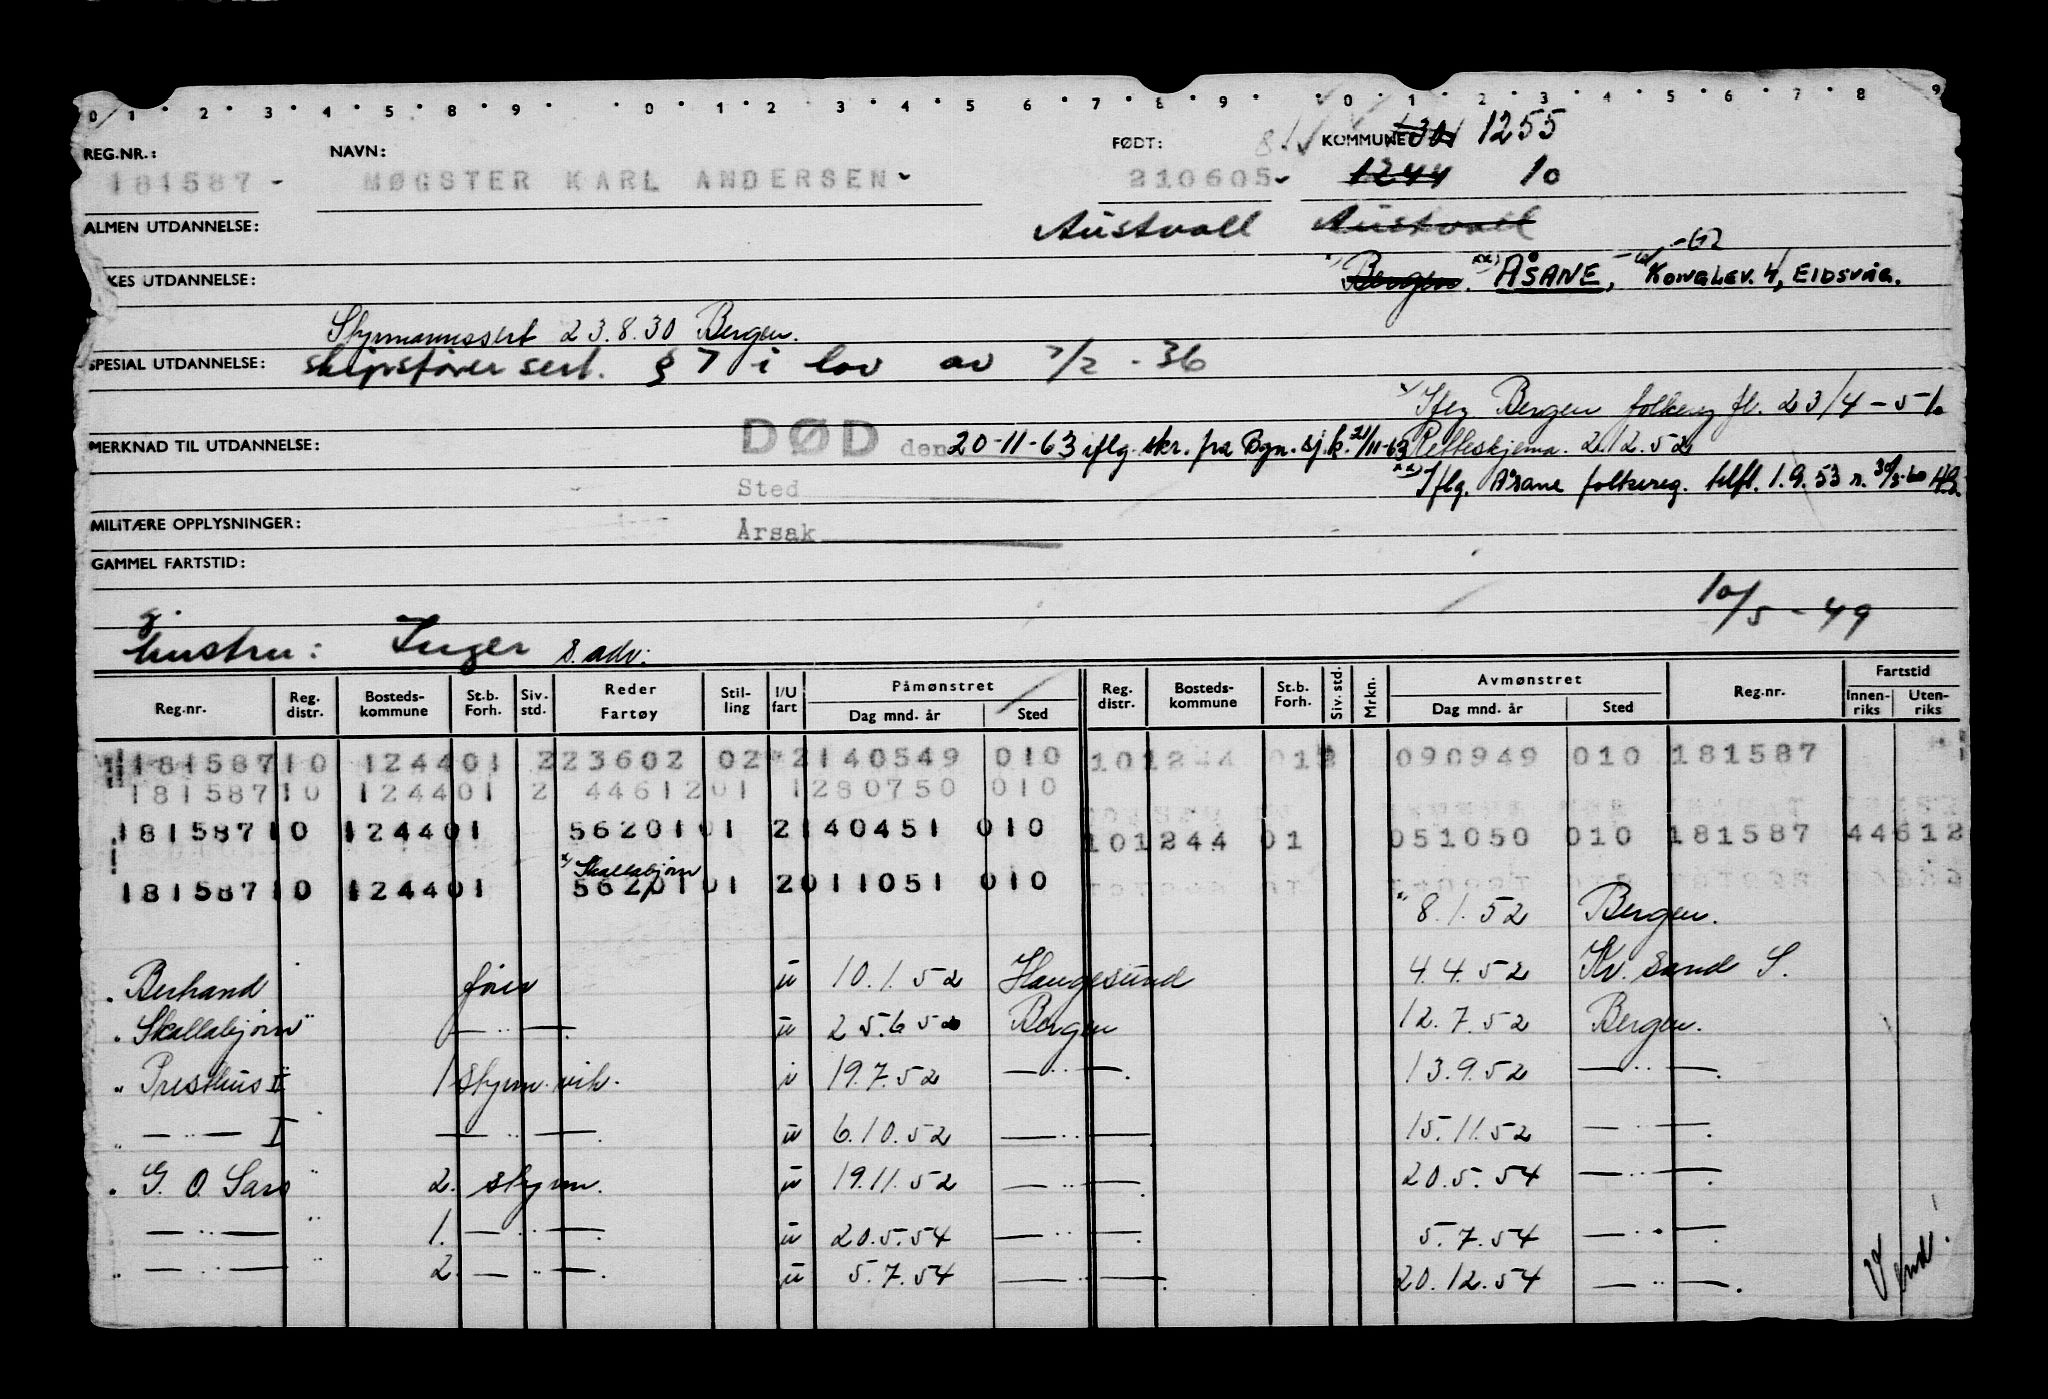 0 1 2 3 4 5 8 9 0 1 2 3 4 5 6 7 8 9 0 1 2 3 4 5 6 7 8 9
REG.NR.: NAVN: FØDT: KOMMUNE 1301 1255
181587 - MØGSTER KARL ANDERSEN - 210605 - 1244 10
ALMEN UTDANNELSE: Austvoll Austvoll
KES UTDANNELSE: x) Bergen. xx) ÅSANE, Konglev. 4, EIDSVÅG. -62
Styrmannssert 23.8.30 Bergen.
SPESIAL UTDANNELSE: skipsfører sert. § 7 i lov av 7/2 - 36
x) Iflg Bergen folkereg fl. 23/4 - 51.
MERKNAD TIL UTDANNELSE: DØD den 20-11-63 iflg. skr. fra Bgn. sj.k. 21/11-63 Retteskjema. 2.12.52
Sted xx) Iflg. Åsane folkereg. tilfl. 1.9.53
MILITÆRE OPPLYSNINGER: Årsak
GAMMEL FARTSTID:
10/5 - 49
hustru: Inger s. adr.
Reg.nr. Reg. distr. Bosteds-kommune St.b. Forh. Siv. std. Reder Fartøy Stil-ling I/U fart Påmønstret Dag mnd. år Sted Reg. distr. Bosteds-kommune St.b. Forh. Siv. std. Mrkn. Avmønstret Dag mnd. år Sted Reg.nr. Fartstid Innen-riks Uten-riks
181587 10 1244 01 2 23602 02 2 140549 010 10 1244 01 2 090949 010 181587
181587 10 1244 01 2 44612 01 1 280750 010
181587 10 1244 01 56201 01 2 140451 010 10 1244 01 051050 010 181587 44612
x) Skallabjørn
181587 10 1244 01 56201 01 2 011051 010
" 8.1.52 Bergen.
" Berhand fører u 10.1.52 Haugesund 4.4.52 Kr. sand S.
" Skallabjørn" — " — u 25.6.52 Bergen 12.7.52 Bergen.
" Presthus I 1 styrm. vik. i 19.7.52 — " — 13.9.52 — " —
" — " — I — " — u 6.10.52 — " — 15.11.52 — " —
" G. O. Sars " 2. styrm. u 19.11.52 — " — 20.5.54 — " —
— " — " 1. — " — u 20.5.54 — " — 5.7.54 — " —
" — " — " 2. — " — u 5.7.54 — " — 20.12.54 — " —
Vend!